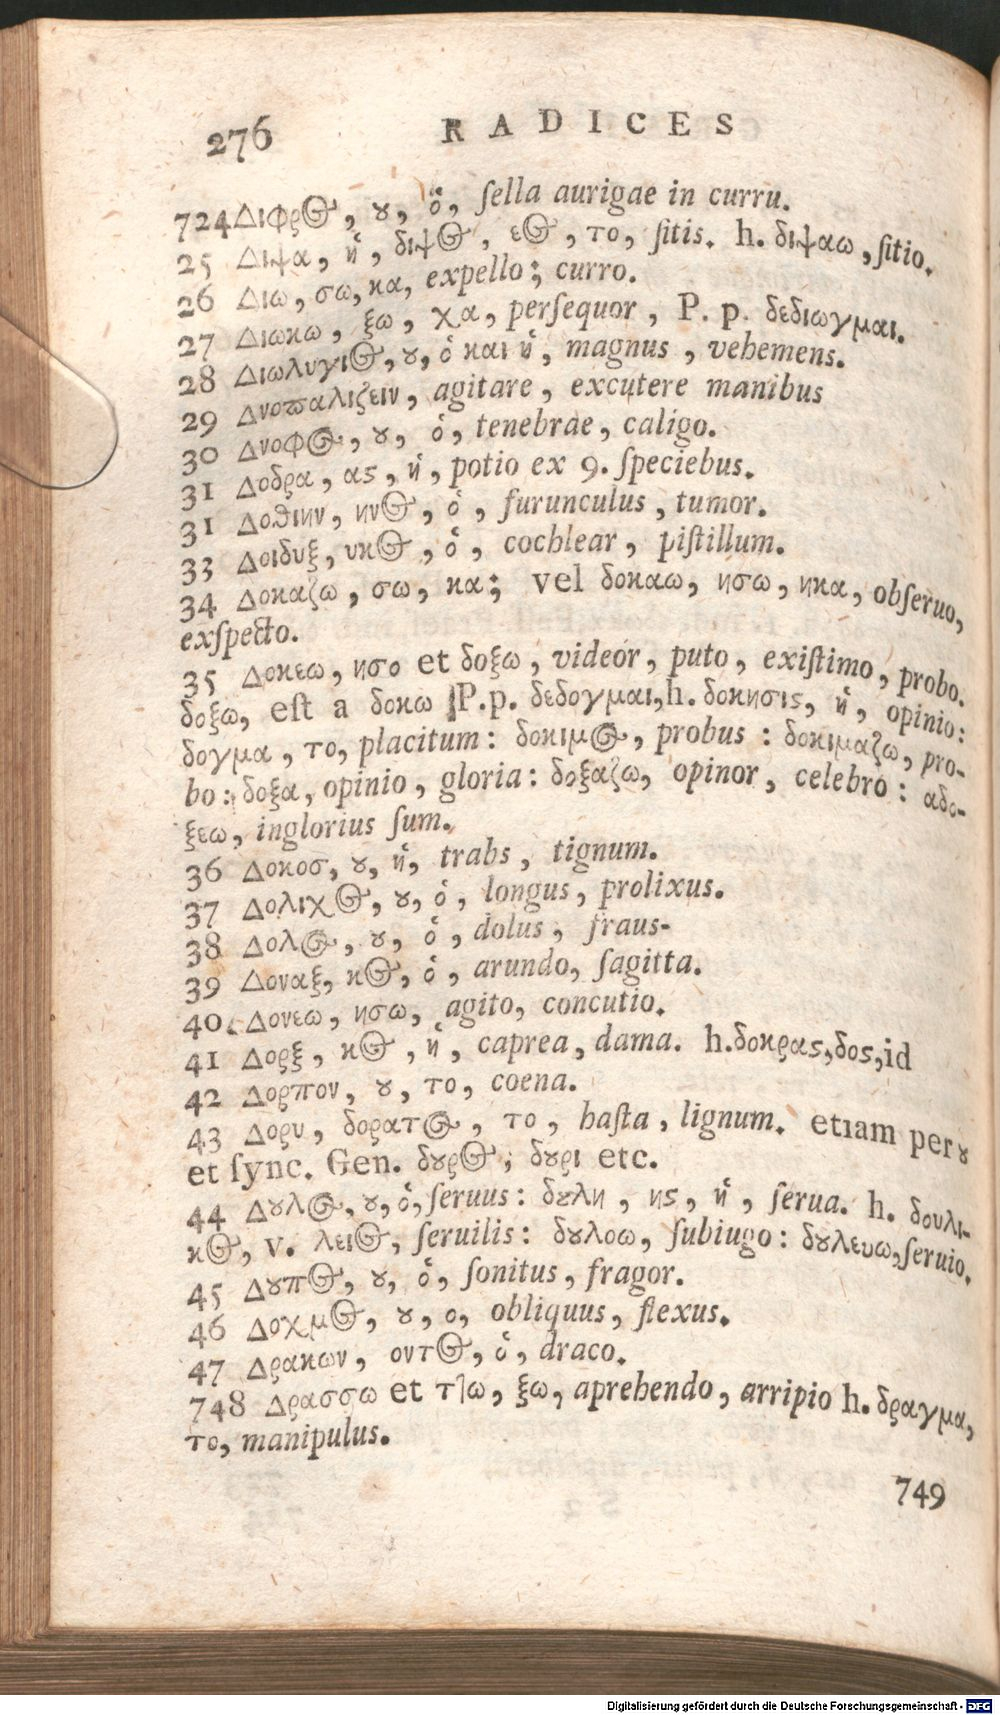 276 RADICES
724 Διφρος, ȣ, ὁ, ſella aurigae in curru.
25 Διψα, ἡ, διψος, εος, το, ſitis. h. διψαω, ſitio.
26 Διω, σω, κα, expello; curro.
27 Διωκω, ξω, χα, perſequor, P. p. δεδιωγμαι.
28 Διωλυγιος, ȣ, ὁ και ἡ, magnus, vehemens.
29 Δνοπαλιζειν, agitare, excutere manibus
30 Δνοφος, ȣ, ὁ, tenebrae, caligo.
31 Δοδρα, ας, ἡ, potio ex 9. ſpeciebus.
31 Δοθιην, ηνος, ὁ, furunculus, tumor.
33 Δοιδυξ, υκος, ὁ, cochlear, piſtillum.
34 Δοκαζω, σω, κα; vel δοκαω, ησω, ηκα, obſeruo,
exſpecto.
35 Δοκεω, ησο et δοξω, videor, puto, exiſtimo, probo.
δοξω, eſt a δοκω P.p. δεδογμαι, h. δοκησις, ἡ, opinio:
δογμα, το, placitum: δοκιμος, probus: δοκιμαζω, pro-
bo: δοξα, opinio, gloria: δοξαζω, opinor, celebro: αδο-
ξεω, inglorius ſum.
36 Δοκοσ, ȣ, ἡ, trabs, tignum.
37 Δολιχος, ȣ, ὁ, longus, prolixus.
38 Δολος, ȣ, ὁ, dolus, fraus-
39 Δοναξ, κος, ὁ, arundo, ſagitta.
40. Δονεω, ησω, agito, concutio.
41 Δορξ, κος, ἡ, caprea, dama. h. δοκρας, δος, id
42 Δορπον, ȣ, το, coena.
43 Δορυ, δορατος, το, haſta, lignum. etiam per ȣ
et ſync. Gen. δȣρος; δȣρι etc.
44 Δȣλος, ȣ, ὁ, ſeruus: δȣλη, ης, ἡ, ſerua. h. δουλι-
κος, v. λειος, ſeruilis: δȣλοω, ſubiugo: δȣλευω, ſeruio.
45 Δȣπος, ȣ, ὁ, ſonitus, fragor.
46 Δοχμος, ȣ, ο, obliquus, flexus.
47 Δρακων, οντος, ὁ, draco.
748 Δρασσω et ττω, ξω, aprehendo, arripio h. δραγμα,
το, manipulus.
749
Digitalisierung gefördert durch die Deutsche Forschungsgemeinschaft - DFG